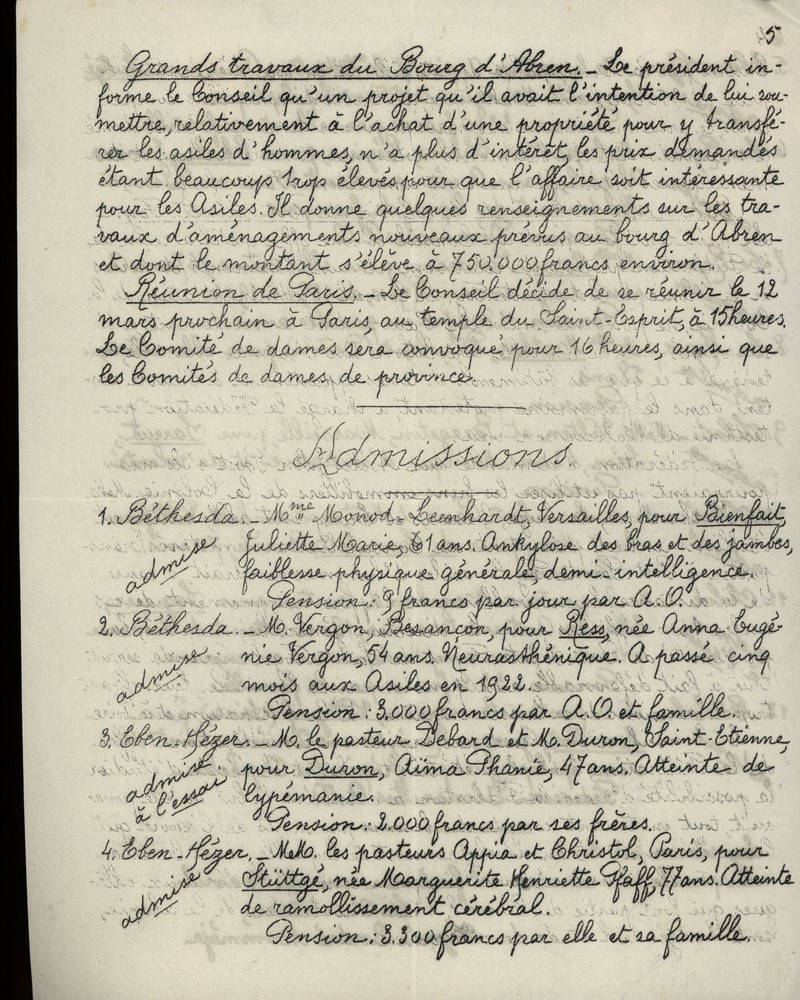 5
Grands travaux du Bourg d'Abren. _ Le président in-
forme le Conseil qu'un projet qu'il avait l'intention de lui sou-
mettre, relativement à l'achat d'une propriété pour y transfé-
rer les asiles d'hommes, n'a plus d'intérêt, les prix demandés
étant beaucoup trop élevés pour que l'affaire soit intéressante
pour les Asiles. Il donne quelques renseignements sur les tra-
vaux d'aménagements nouveaux prévus au bourg d'Abren
et dont le montant s'élève à 750.000 francs environ.
Réunion de Paris. _ Le Conseil décide de se réunir le 12
mars prochain à Paris, au temple du Saint-Esprit, à 15 heures.
Le Comité de dames sera convoqué pour 16 heures, ainsi que
les Comités de dames de province.
Admissions.
1. Béthesda. _ Mme Monod-Leenhardt, Versailles, pour Bienfait,
admise Juliette Marie, 61 ans. Ankylose des bras et des jambes,
faiblesse physique générale, demi-intelligence.
Pension: 9 francs par jour par A.O.
2. Béthesda. _ M. Vergon, Besançon, pour Ress, née Anna Eugé-
admise nie Vergon, 54 ans. Neurasthénique. A passé cinq
mois aux Asiles en 1922.
Pension: 3.000 francs par A.O. et famille.
3. Eben-Hézer. _ M. le pasteur Debard et M. Duron, Saint-Etienne,
admise pour Duron, Aïma Phanie, 47 ans. Atteinte de
à l'essai lypémanie.
Pension: 2.000 francs par ses frères.
4. Eben-Hézer. _ MM. les pasteurs Appia et Christol, Paris, pour
admise Stüttgé, née Marguerite Henriette Pfaff, 77 ans. Atteinte
de ramollissement cérébral.
Pension: 3.300 francs par elle et sa famille.